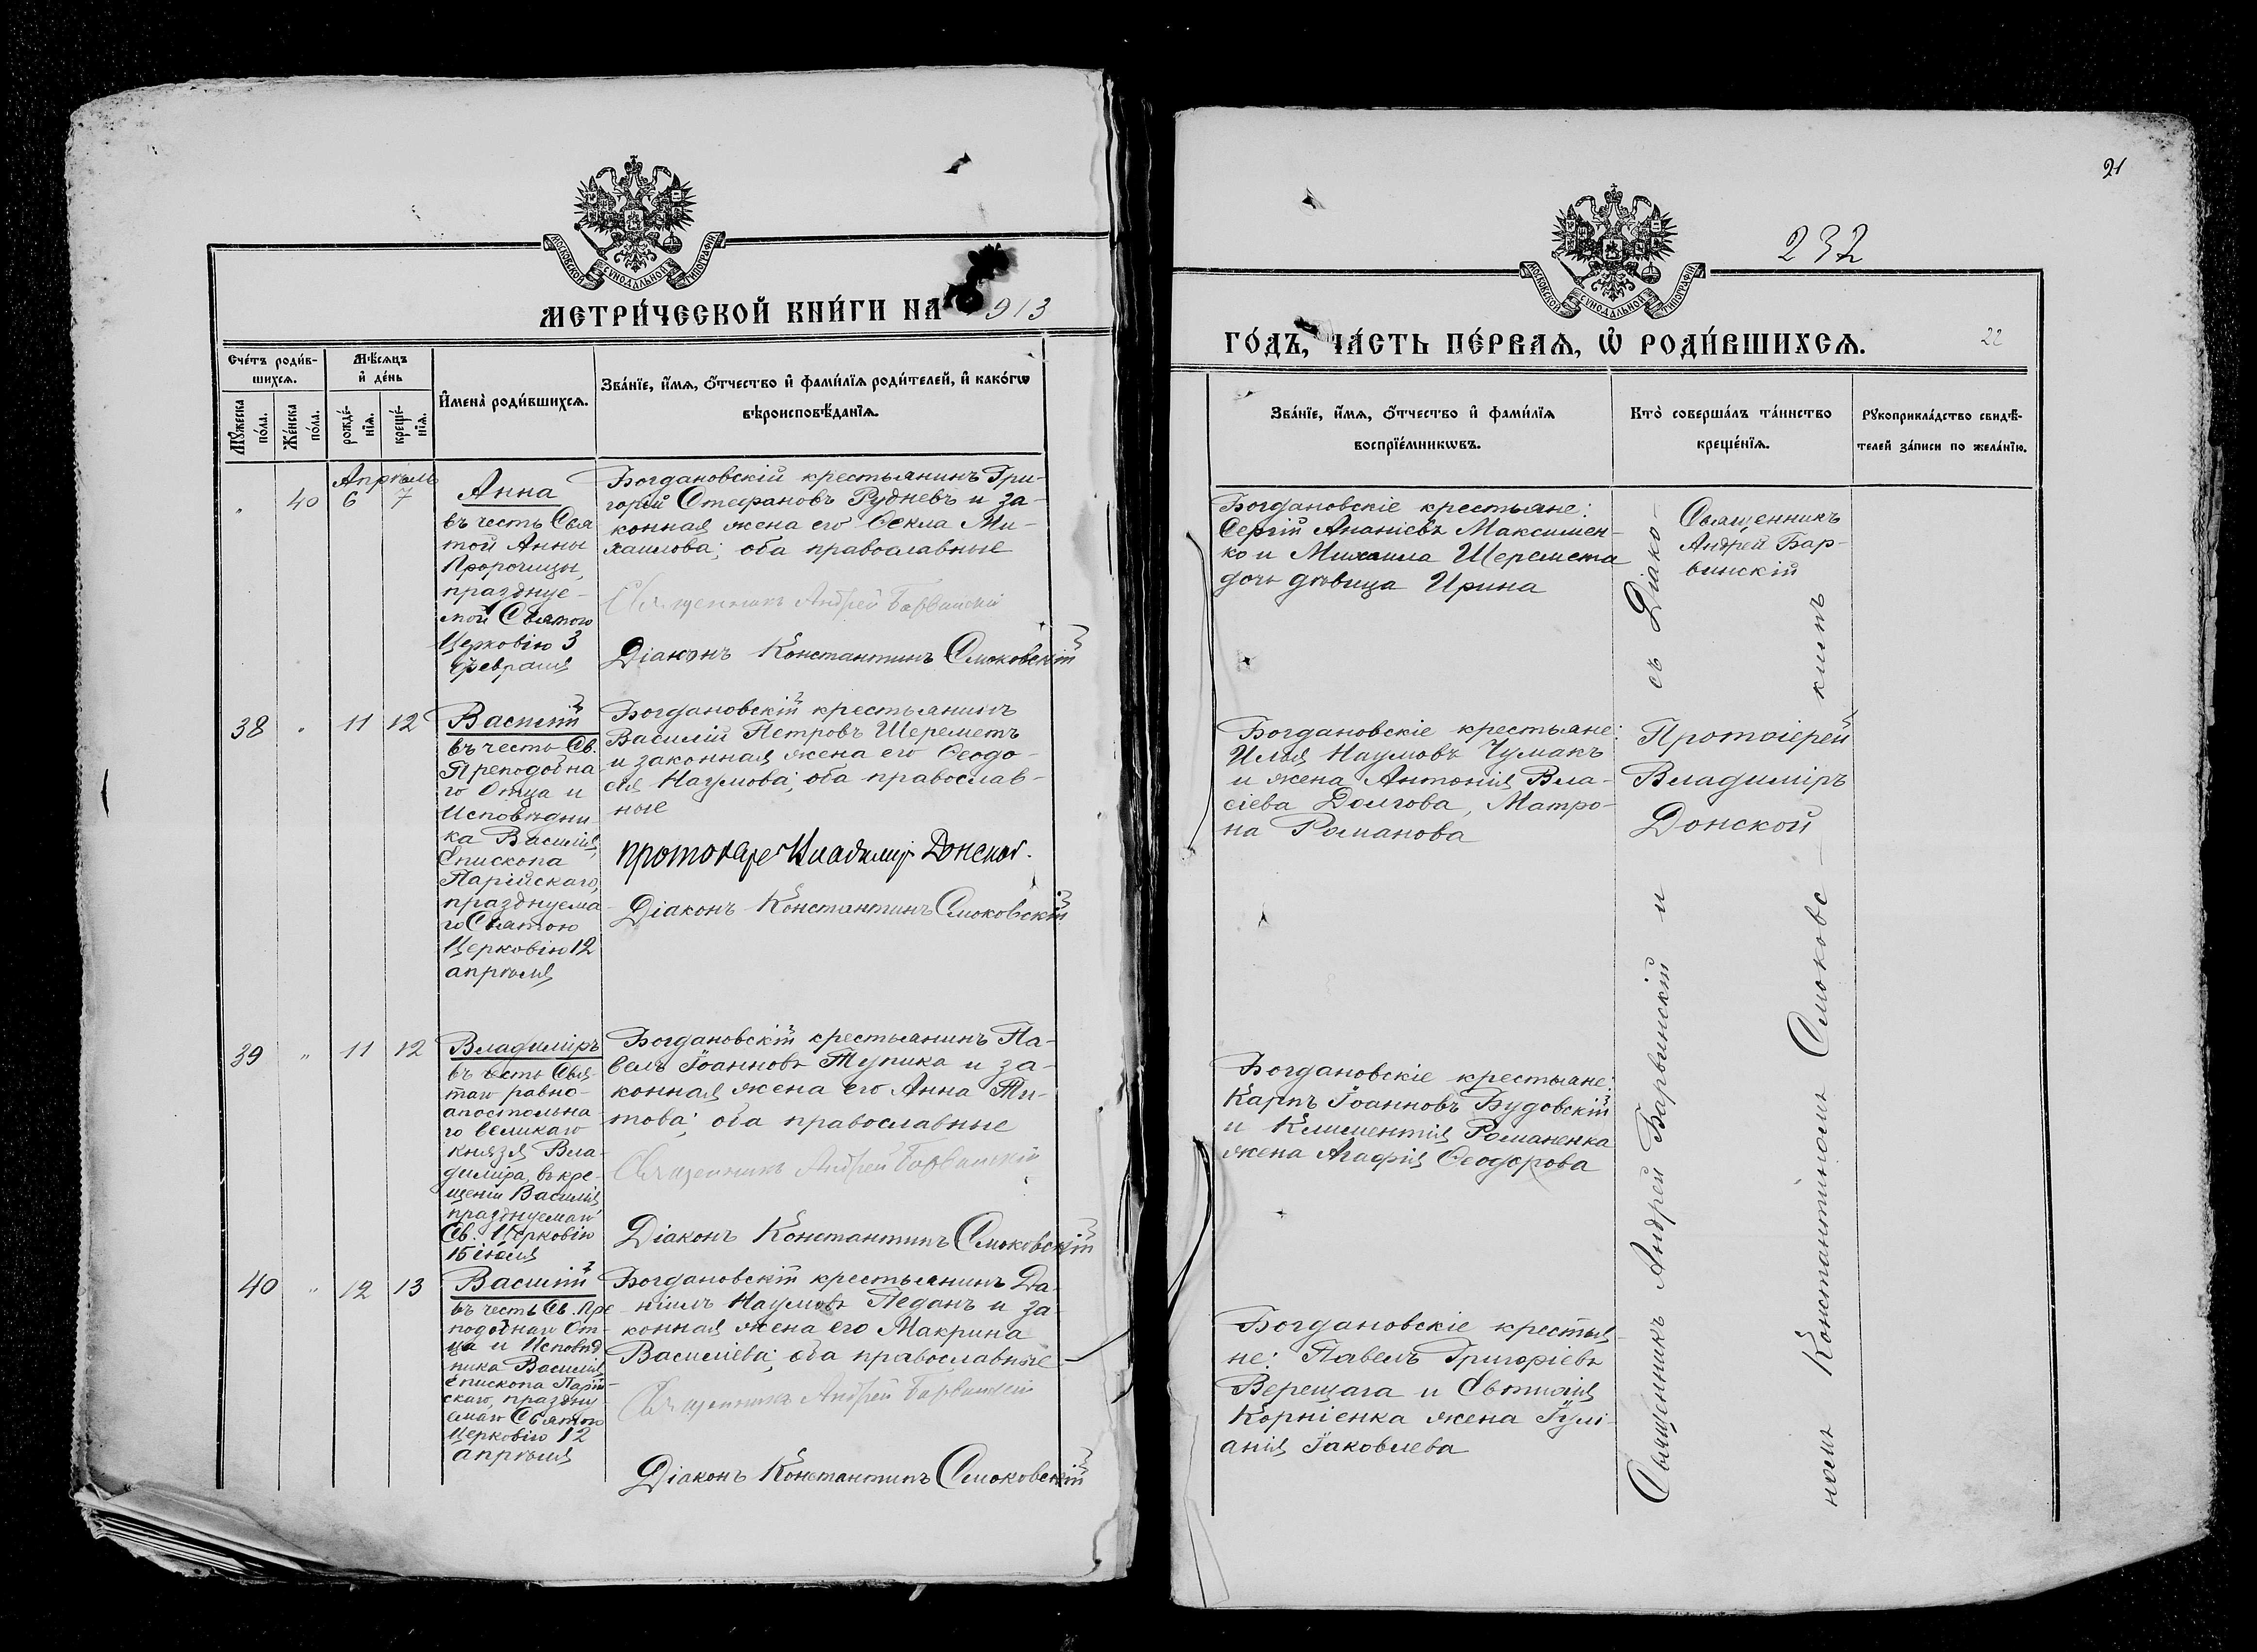 МЕТРИ́ЧЕСКОЙ КНИ́ГИ НА 913
Сче́тъ роди́в-
шихсѧ.
Мѣ́сѧцъ
и҆ де́нь
Мꙋ́жеска
по́ла.
Же́нска
по́ла.
рожде́-
нїѧ.
креще́-
нїѧ.
И҆мена̀ роди́вшихсѧ.
Зва́нїе, и҆́мѧ, ѻ҆́тчество и҆ фами́лїѧ роди́телей, и҆ како́гѡ
вѣроисповѣ́данїѧ.
Апрѣль
" 40 6 7
Анна
въ честь Свя
той Анны
Пророчицы,
празднуе-
мой Святою
Церковію 3
февраля
Богдановскій крестьянинъ Гри-
горій Стефановъ Рудневъ и за-
конная жена его Ѳекла Ми-
хаилова; оба православные
Священникъ Андрей Барвинскій
Діаконъ Константинъ Смоковскій
38 " 11 12
Василій
въ честь Св.
Преподобна-
го Отца и
Исповѣдни-
ка Василія,
Епископа
Парійскаго,
празднуема-
го Святою
Церковію 12
апрѣля
Богдановскій крестьянинъ
Василій Петровъ Шереметъ
и законная жена его Ѳеодо-
сія Наумова; оба православ-
ные
Протоіерей Владимір Донской.
Діаконъ Константинъ Смоковскій
39 " 11 12
Владиміръ
въ честь Свя-
таго равно-
апостольна
го великаго
князя Вла-
диміра, въ кре-
щеніи Василія,
празднуемаго
Св. Церковію
15 іюля
Богдановскій крестьянинъ Па-
велъ Іоанновъ Тупика и за-
конная жена его Анна Ти-
това; оба православные
Священникъ Андрей Барвинскій
Діаконъ Константинъ Смоковскій
40 " 12 13
Василій
въ честь Св. Пре
подобнаго От-
ца и Исповѣд
ника Василія,
Епископа Парій-
скаго, праздну
емаго Святою
Церковію 12
апрѣля
Богдановскій крестьянинъ Да-
ніилъ Наумовъ Педанъ и за-
конная жена его Макрина
Василіева; оба православные
Священникъ Андрей Барвинскій
Діаконъ Константинъ Смоковскій
21
232
ГО́ДЪ, ЧА́СТЬ ПЕ́РВАѦ, Ѡ҆ РОДИ́ВШИХСѦ.
22
Зва́нїе, и҆́мѧ, ѻ҆́тчество и҆ фами́лїѧ
воспрїе́мникѡвъ.
Кто̀ соверша́лъ та́инство
креще́нїѧ.
Рꙋкоприкла́дство свидѣ́-
телей за́писи по жела́нїю.
Богдановскіе крестьяне:
Сергій Ананіевъ Максимен-
ко и Михаила Шеремета
дочь дѣвица Ирина
Священникъ
Андрей Бар-
винскій
Богдановскіе крестьяне:
Илья Наумовъ Чумакъ
и жена Антонія Вла-
сіева Долгова, Матро-
на Романова
Протоіерей
Владиміръ
Донской
Богдановскіе крестьяне:
Карпъ Іоанновъ Будовскій
и Климентія Романенка
жена Агафія Ѳеодорова
Богдановскіе крестья-
не: Павелъ Григоріевъ
Верещага и Евтихія
Корніенка жена Іулі-
анія Іаковлева
Священникъ Андрей Барвинскій и съ Діако-
номъ Константиномъ Смоковс-кимъ
МОСКОВСКОЙ СѴНОДАЛЬНОЙ ТИПОГРАФІИ
МОСКОВСКОЙ СѴНОДАЛЬНОЙ ТИПОГРАФІИ